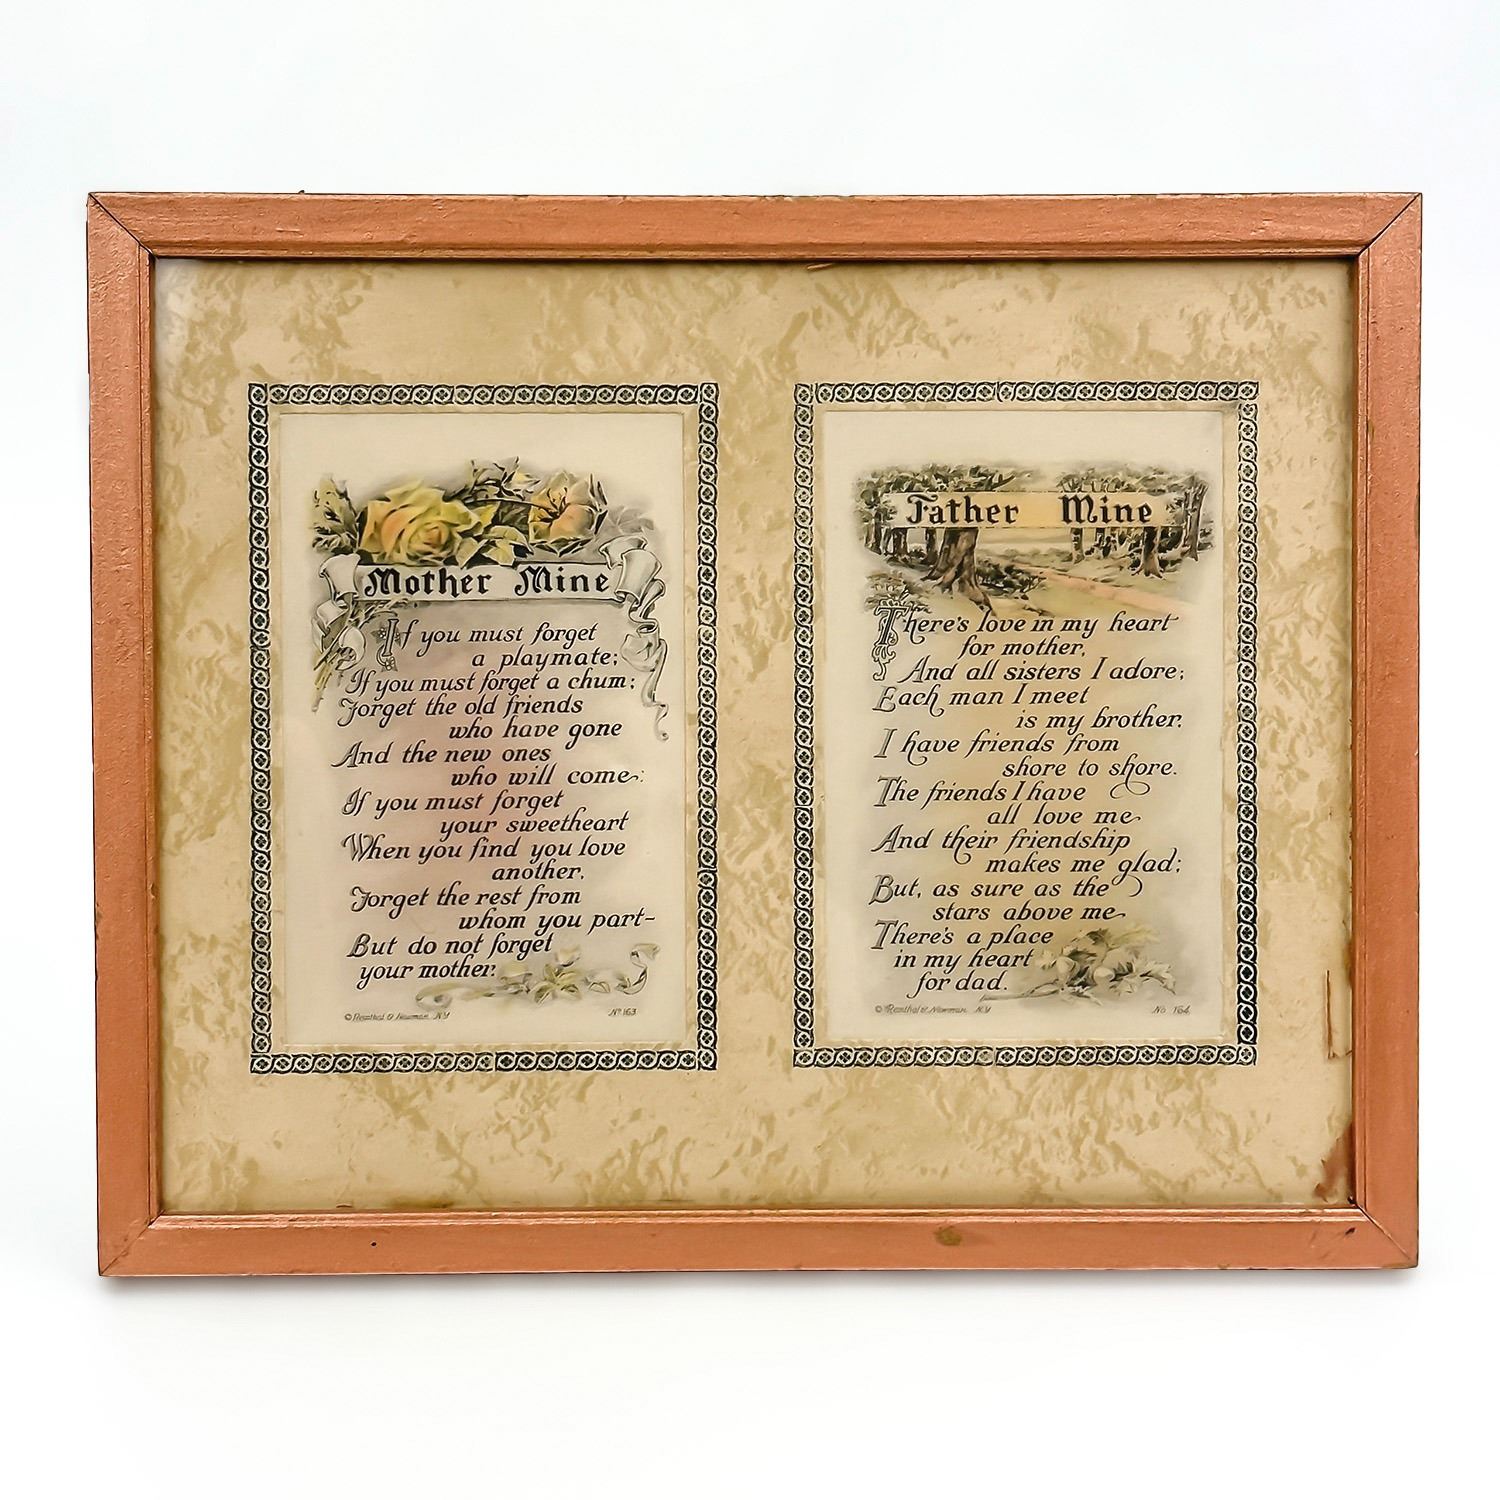 Mother Mine
If you must forget
a playmate;
If you must forget a chum;
Forget the old friends
who have gone
And the new ones
who will come:
If you must forget
your sweetheart
When you find you love
another,
Forget the rest from
whom you part-
But do not forget
your mother.
© Reinthal & Newman. N.Y
No 163
Father Mine
There's love in my heart
for mother,
And all sisters I adore;
Each man I meet
is my brother.
I have friends from
shore to shore.
The friends I have
all love me
And their friendship
makes me glad;
But, as sure as the
stars above me
There's a place
in my heart
for dad.
© Reinthal & Newman. N.Y
No 164